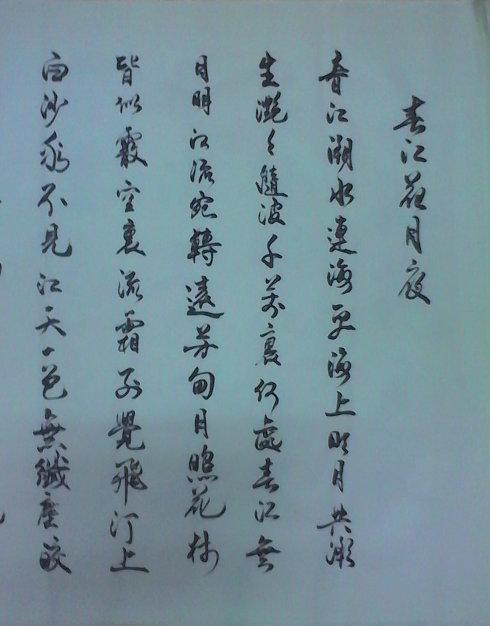 春江花月夜
春江潮水連海平海上明月共潮
生灧々隨波千萬裏何處春江無
月明江流宛轉遶芳甸月照花林
皆似霰空裏流霜不覺飛汀上
白沙看不見江天一色無纖塵皎